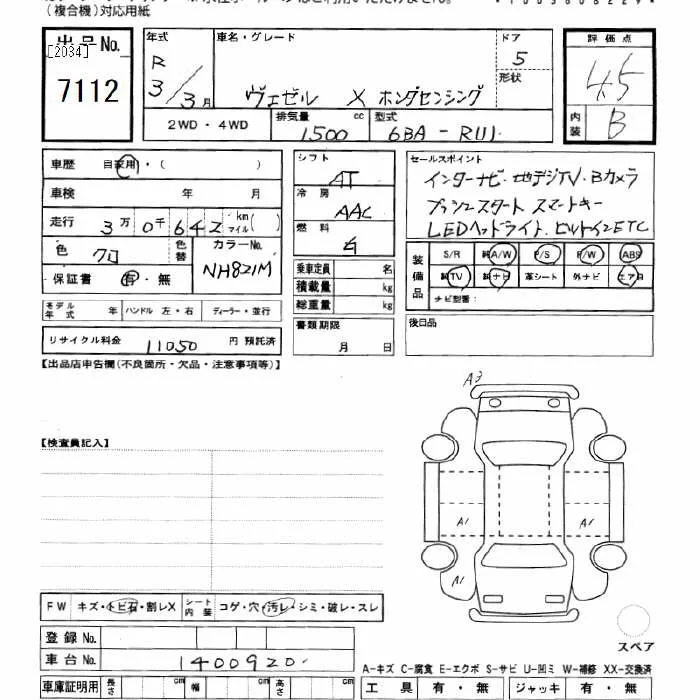 (複合機)対応用紙
出品No. 年式 車名・グレード ドア 評価点
[2034]
7112 R 3/3月 ヴェゼル X ホンダセンシング 5 4.5
形状
2WD・4WD 排気量 1500 cc 型式 6BA-RU1 内装 B
車歴 自家用・( ) シフト AT セールスポイント
車検 年 月 冷房 AAC インターナビ・地デジTV・Bカメラ
走行 3万0千642 km マイル( ) 燃料 プッシュスタート スマートキー
LEDヘッドライト ビルトインETC
色 クロ 色替 カラーNo. NH821M
保証書 有・無
乗車定員 名
積載量 kg
総重量 kg
装備品 S/R 純A/W P/S P/W ABS
純TV 純ナビ 革シート 外ナビ エアB
ナビ型番:
モデル年式 年 ハンドル 左・右 ディーラー・並行 書類期限 月 日 後日品
リサイクル料金 11050 円 預託済
【出品店申告欄(不良箇所・欠品・注意事項等)】
A3
【検査員記入】
A1 A1
A1
FW キズ・トビ石・割レX シート内装 コゲ・穴・汚レ・シミ・破レ・スレ
登録No.
スペア
車台No. 1400920
A-キズ C-腐食 E-エクボ S-サビ U-凹ミ W-補修 XX-交換済
車庫証明用 長さ cm 幅 cm 高さ cm 工具 有・無 ジャッキ 有・無